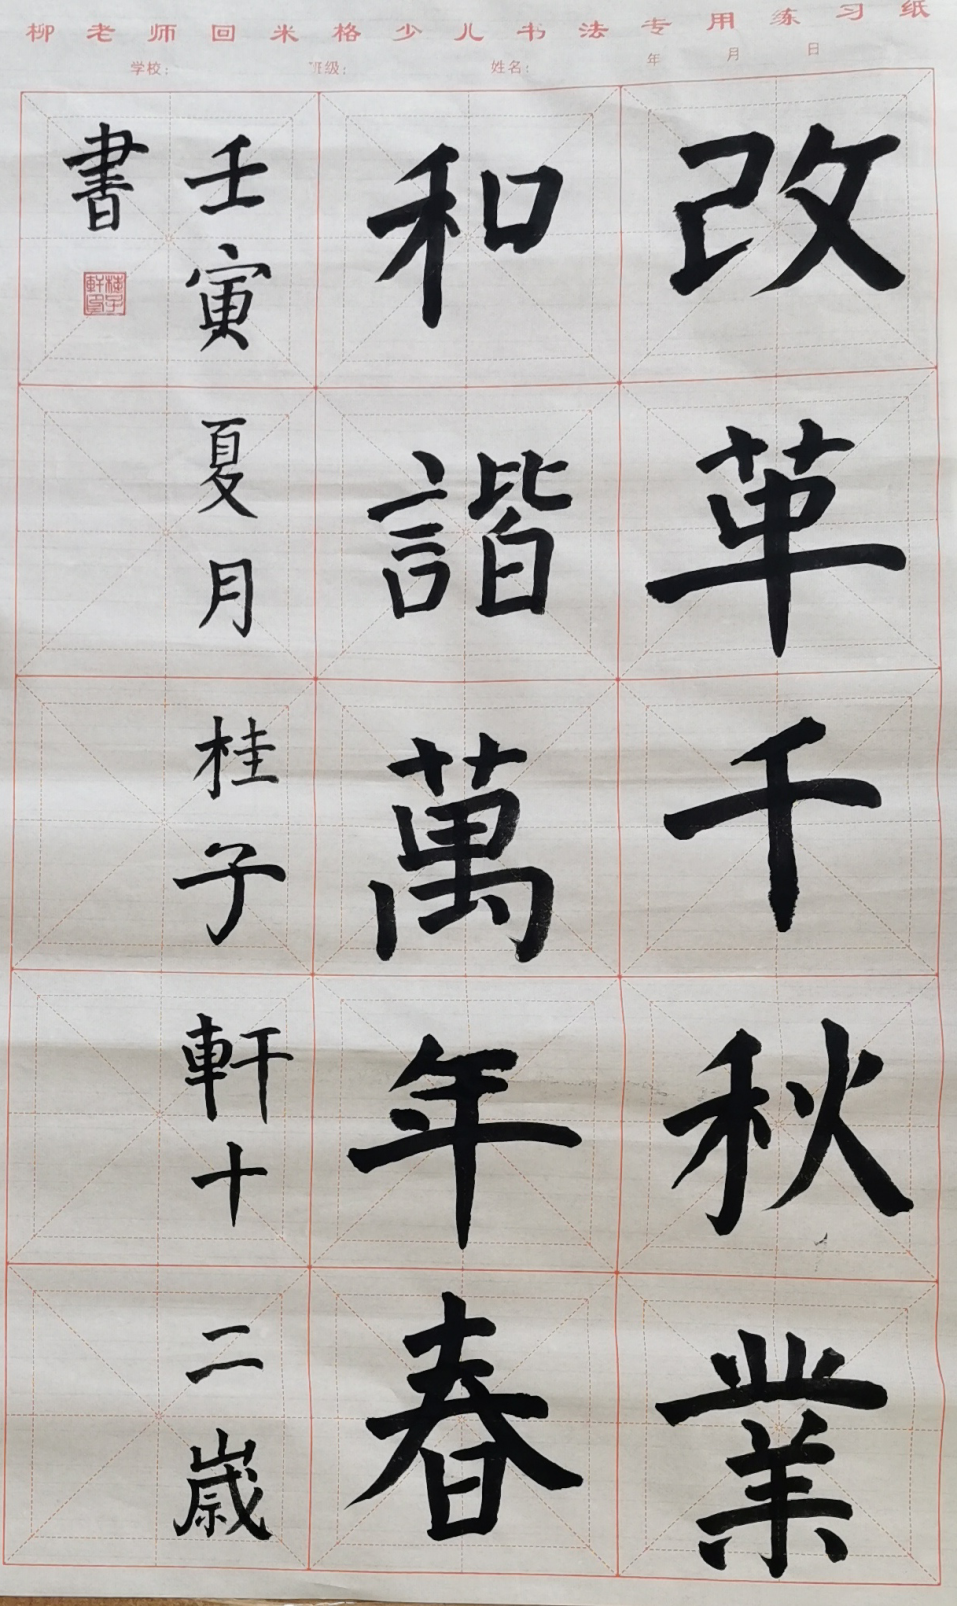 柳老师回米格少儿书法专用练习纸
学校： 班级： 姓名： 年 月 日
改革千秋業
和諧萬年春
壬寅夏月桂子軒十二歲
書
桂子軒印